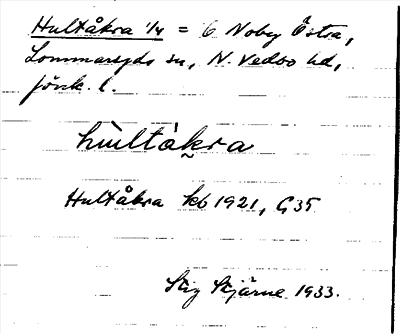 Hultåkra 1/4 = 6 Noby Östra,
Lommaryds sn, N. Vedbo hd,
Jönk. l.
hùltå̀kra
Hultåkra kb 1921, G35
Stig Stjärne 1933.